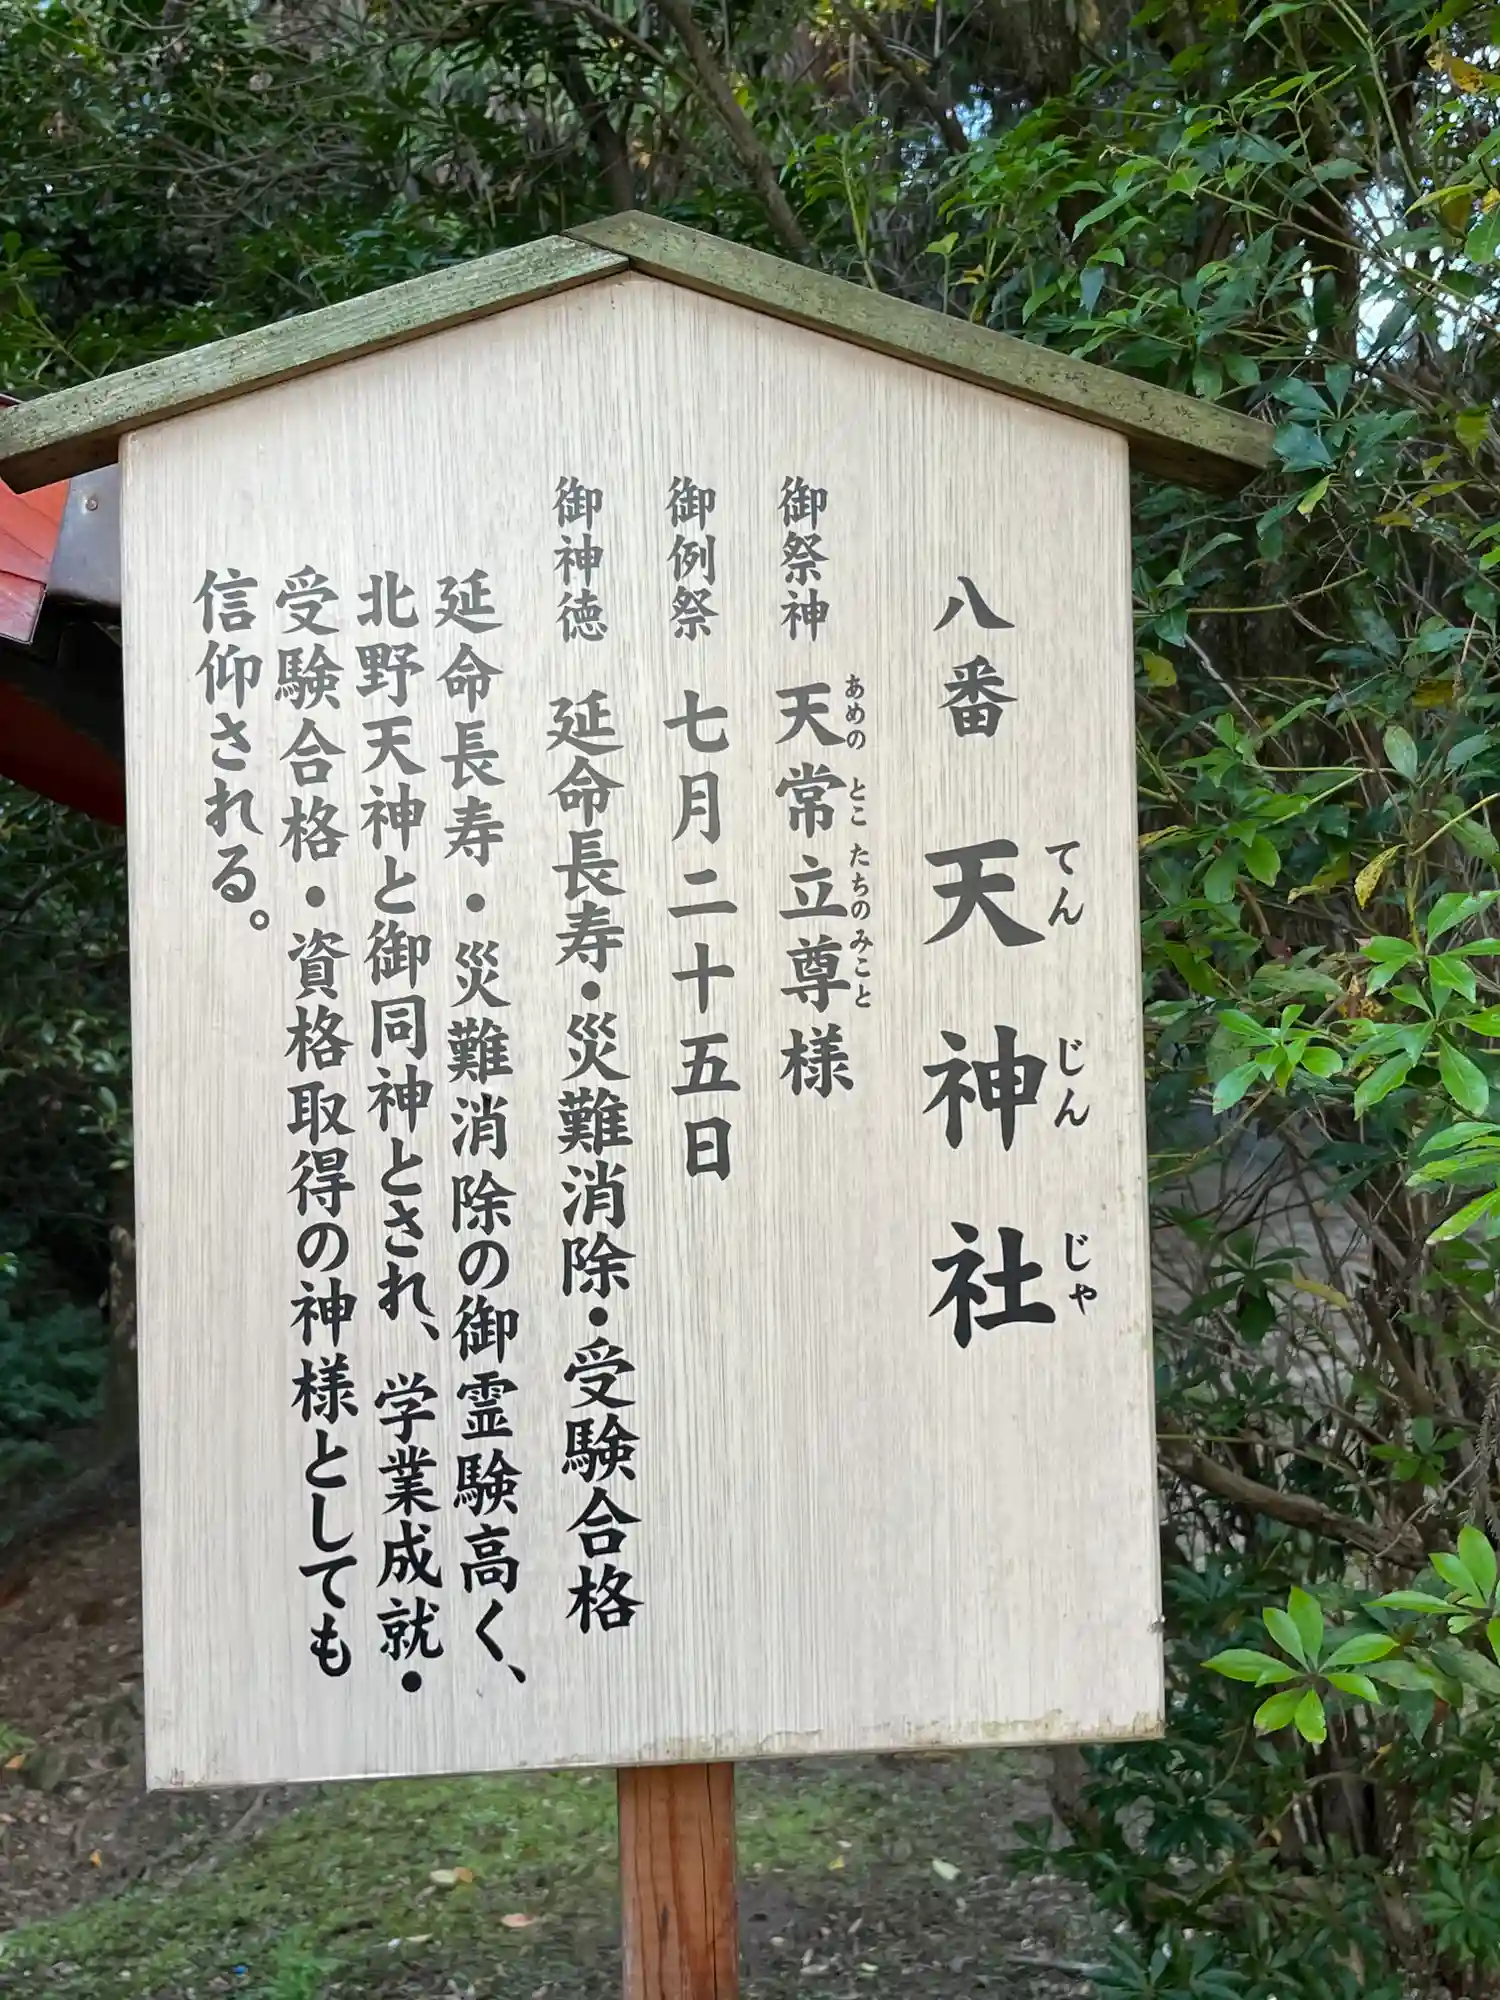 八番 天神社
てん じん じゃ
御祭神 天常立尊様
あめの とこ たちの みこと
御例祭 七月二十五日
御神徳 延命長寿・災難消除・受験合格
延命長寿・災難消除の御霊験高く、
北野天神と御同神とされ、学業成就・
受験合格・資格取得の神様としても
信仰される。